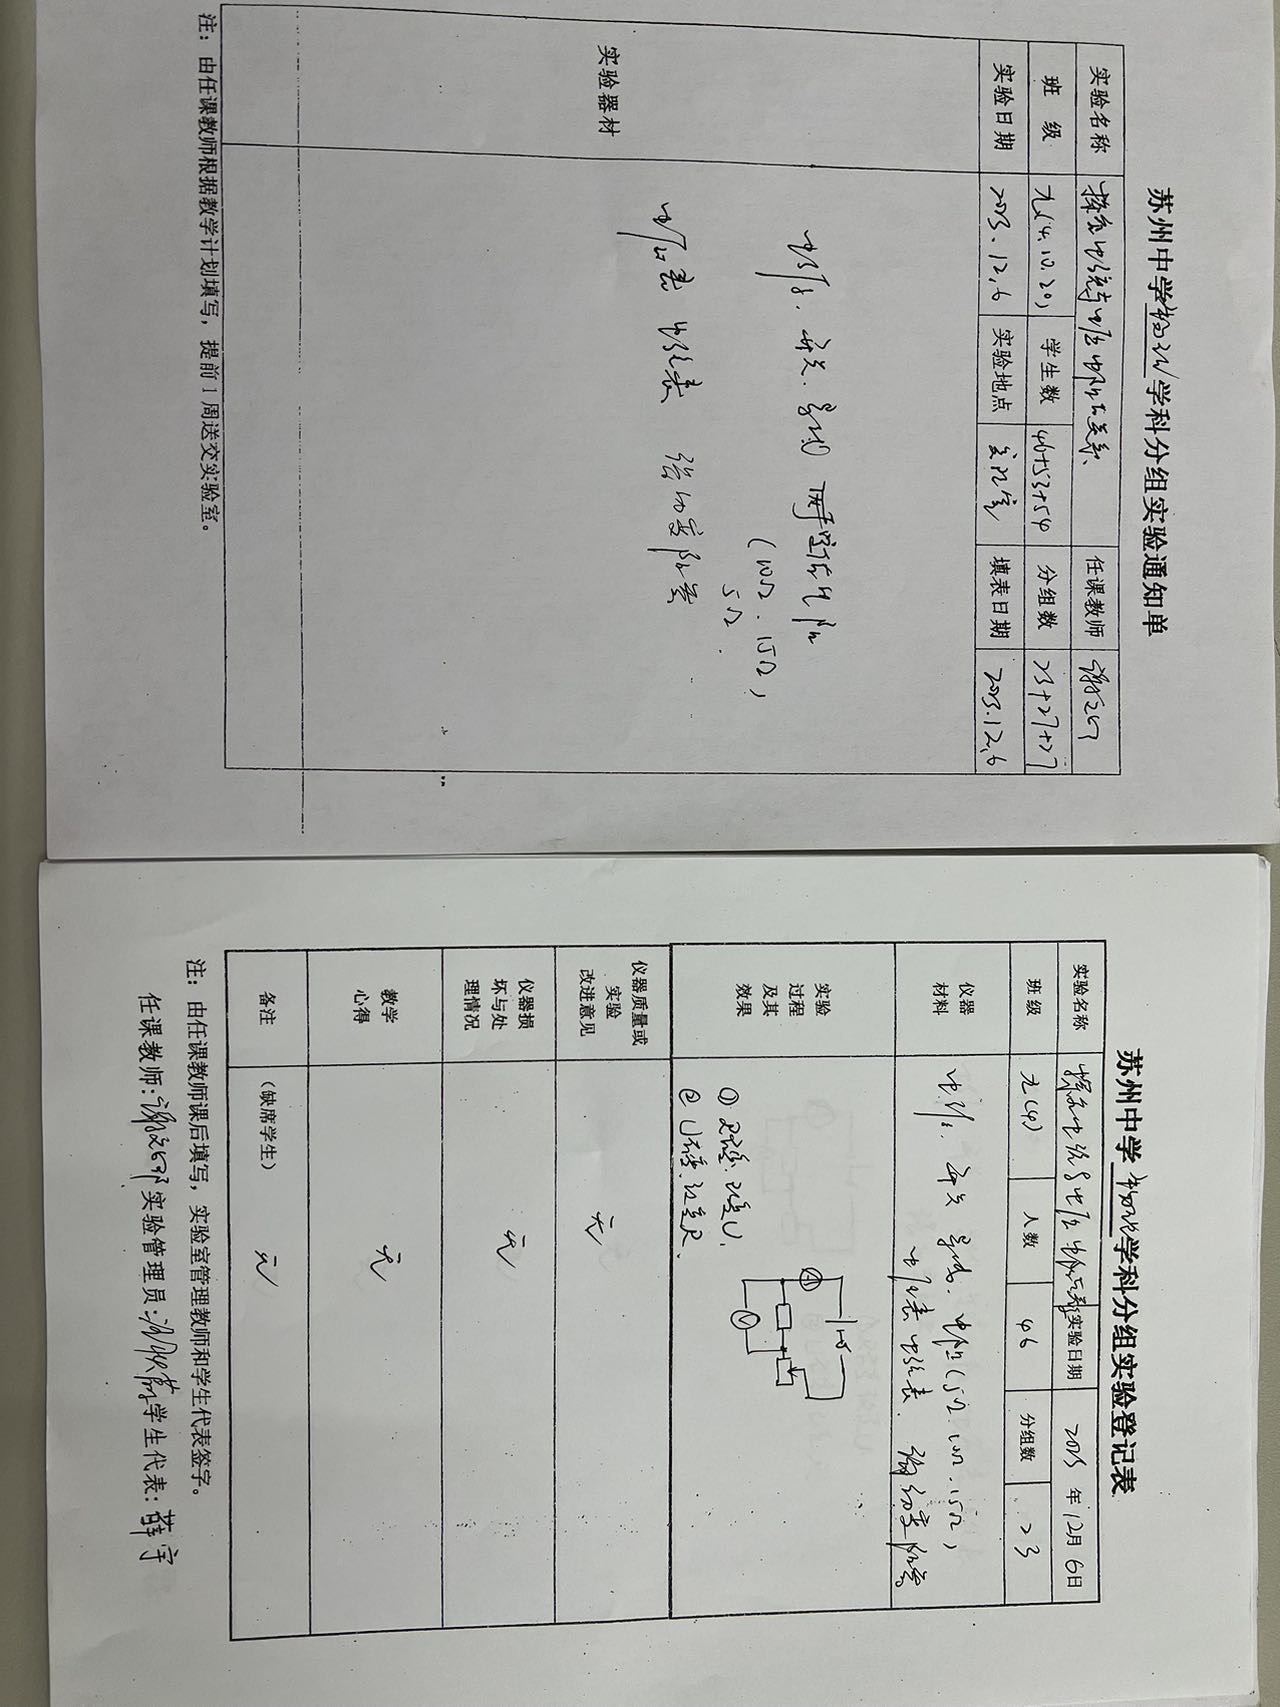 苏州中学物理学科分组实验通知单
实验名称 探究电流与电压电阻的关系 任课教师
班级 九(4.10.20) 学生数 46+53+54 分组数 23+27+27
实验日期 2023.12.6 实验地点 实验室 填表日期 2023.12.6
实验器材
电源、开关、导线 定值电阻
(10Ω、15Ω、
5Ω
电压表 电流表 滑动变阻器
注：由任课教师根据教学计划填写，提前1周送交实验室。
苏州中学物理学科分组实验登记表
实验名称 探究电流与电压电阻关系 实验日期 2023年12月6日
班级 九(4) 人数 46 分组数 23
仪器材料 电源、开关 导线、电阻(5Ω、10Ω、15Ω)
电压表 电流表、滑动变阻器
实验过程及其效果
① R不变、改变U、
② U不变、改变R、
A
V
仪器质量或实验改进意见 无
仪器损坏与处理情况 无
教学心得 无
备注 (缺席学生) 无
注：由任课教师课后填写，实验室管理教师和学生代表签字。
任课教师： 实验管理员： 学生代表：薛宇